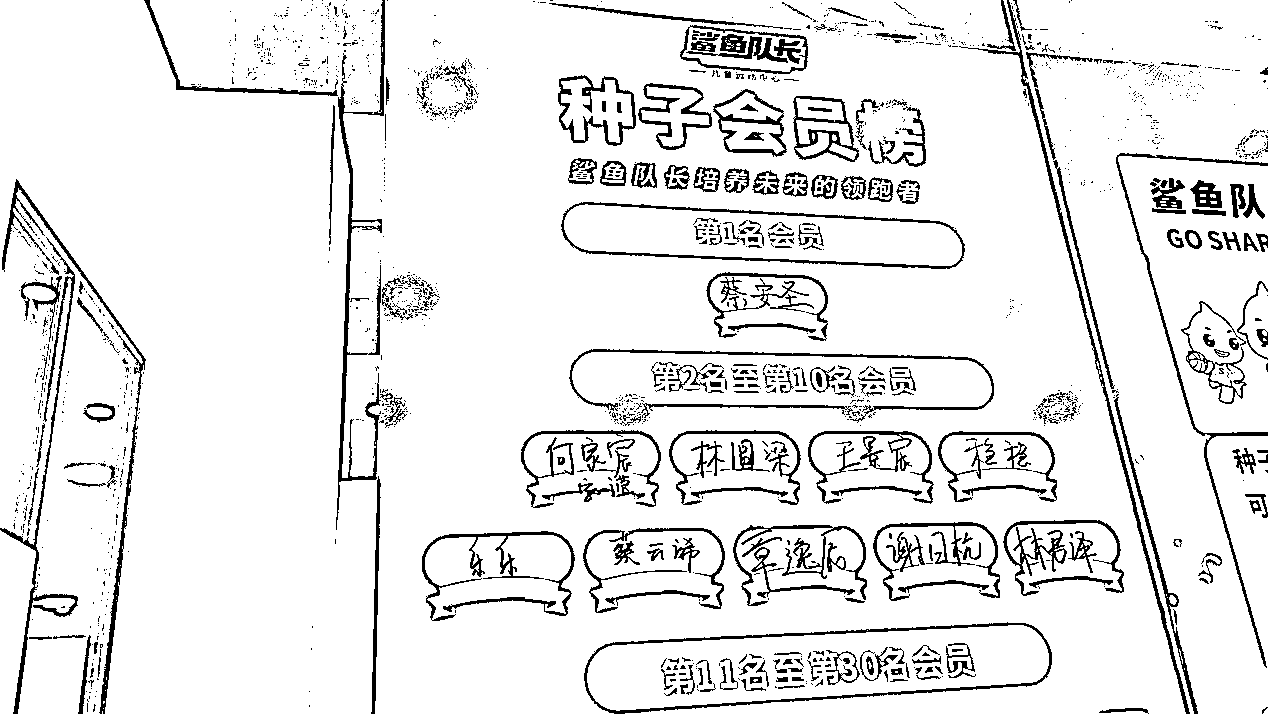 鲨鱼队长
儿童运动中心
种子会员榜
鲨鱼队长培养未来的领跑者
第1名会员
蔡安圣
第2名至第10名会员
何家宸
林圆梁 王景宸 稳稳
乐乐 蔡云浠 章逸 谢日杭 林君泽
第11名至第30名会员
鲨鱼队
GO SHAR
种子
可